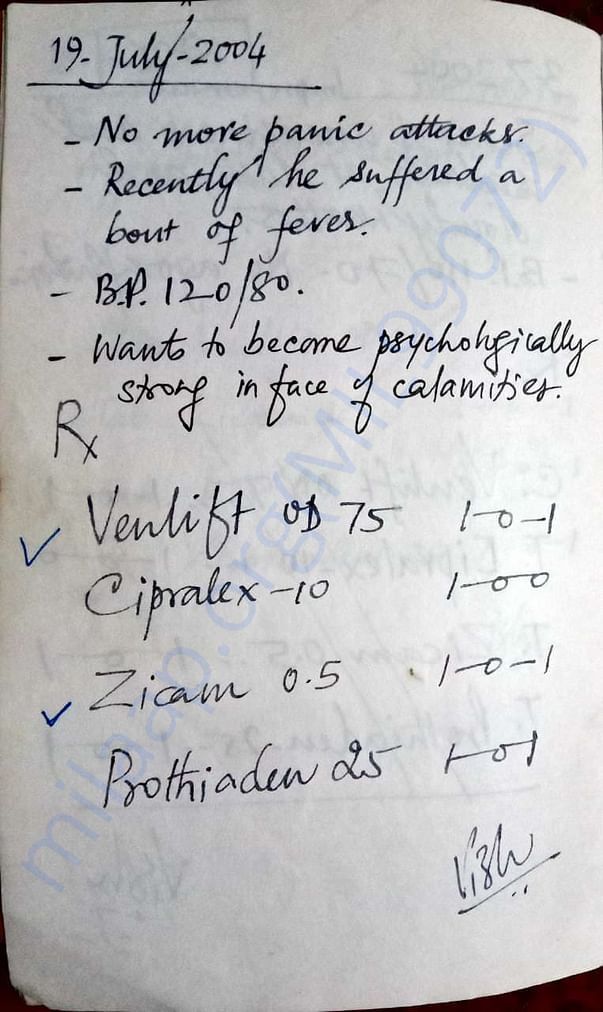 19-July-2004
- No more panic attacks.
- Recently he suffered a
bout of fever.
- B.P. 120/80.
- Wants to become psychologically
strong in face of calamities.
Rx
Venlift OD 75 1-0-1
Cipralex-10 1-0-0
Zicam 0.5 1-0-1
Prothiaden 25 1-0-1
milaap.org(Mili99072)